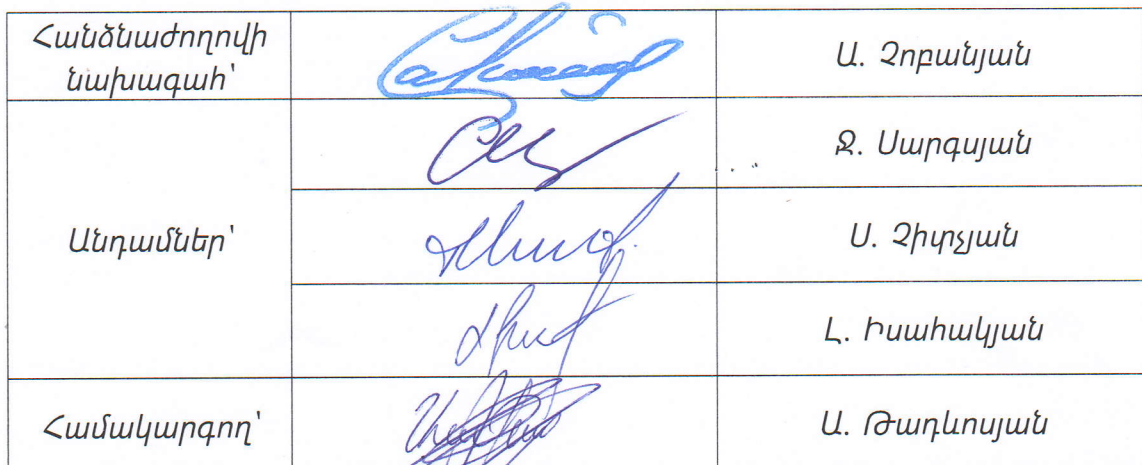 Հանձնաժողովի
նախագահ՝
Ա. Չոբանյան
Ջ. Սարգսյան
Անդամներ՝
Ս. Չիփչյան
Լ. Իսահակյան
Համակարգող՝
Ա. Թադևոսյան